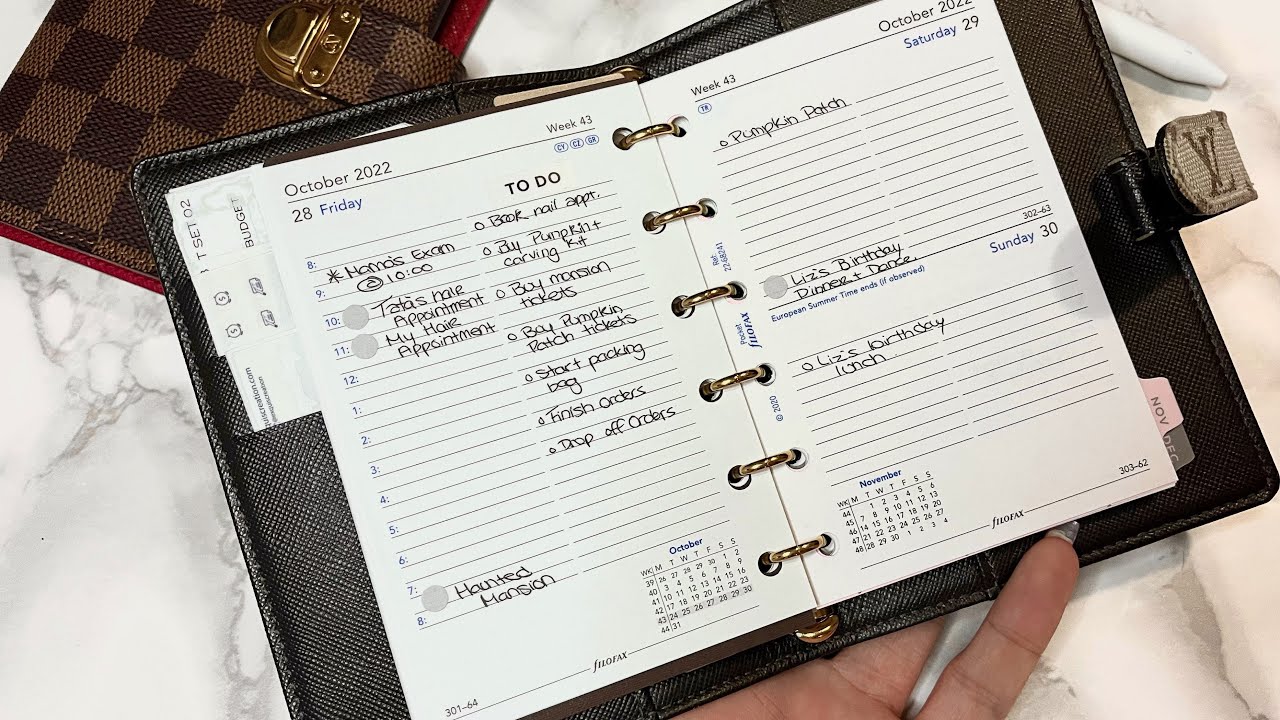 T SET 02
BUDGET
October 2022
Week 43
CY CZ GR
28 Friday
TO DO
8:
* Mama's Exam
@ 10:00
9:
10:
Tata's hair
Appointment
11:
My Hair
Appointment
12:
1:
2:
3:
4:
5:
6:
7:
Haunted
Mansion
8:
o Book nail appt.
o Buy Pumpkin +
carving kit
o Buy mansion
tickets
o Buy Pumpkin
Patch tickets
o Start packing
bag
o Finish orders
o Drop off Orders
October
WK M T W T F S S
39 26 27 28 29 30 1 2
40 3 4 5 6 7 8 9
41 10 11 12 13 14 15 16
42 17 18 19 20 21 22 23
43 24 25 26 27 28 29 30
44 31
301-64
fILOFAX
Week 43
October 2022
TR
Saturday 29
o Pumpkin Patch
Liz's Birthday
Dinner + Dance
302-63
Sunday 30
European Summer Time ends (if observed)
o Liz's birthday
lunch
Pocket
fILOFAX
© 2020
November
WK M T W T F S S
44 1 2 3 4 5 6
45 7 8 9 10 11 12 13
46 14 15 16 17 18 19 20
47 21 22 23 24 25 26 27
48 28 29 30 1 2 3 4
fILOFAX
303-62
NOV
DEC
LV